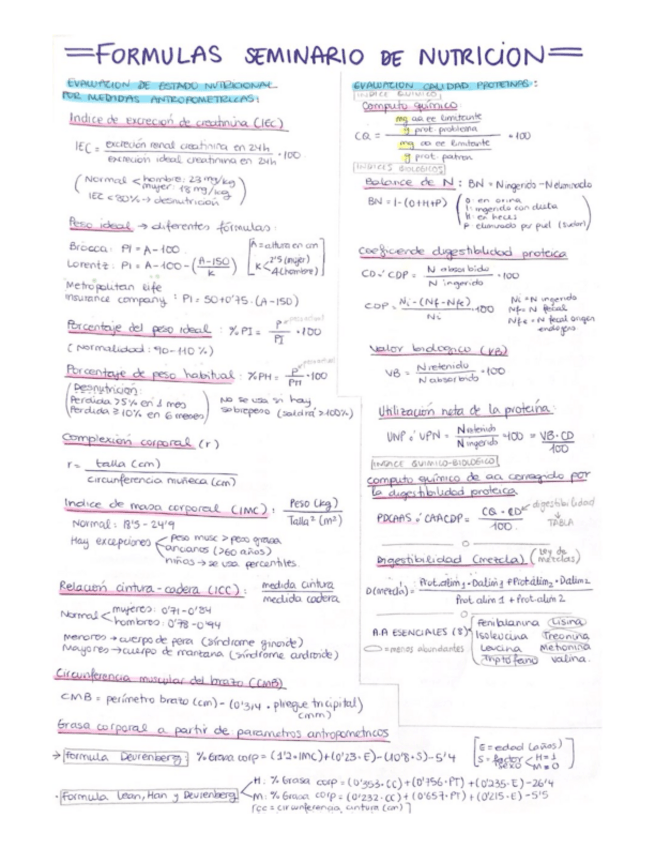 =FORMULAS SEMINARIO DE NUTRICION=
EVALUACION DE ESTADO NUTRICIONAL
POR MEDIDAS ANTROPOMETRICAS:
Indice de excreción de creatinina (IEC)
IEC = excreción renal creatinina en 24h / excreción ideal creatinina en 24h · 100
(Normal < hombre: 23 mg/kg
mujer: 18 mg/kg
IEC < 80% → desnutrición)
Peso ideal → diferentes fórmulas:
Brocca: PI = A-100
Lorentz: PI = A-100-(A-150/K)
[A = altura en cm
K < 2'5 (mujer)
4 (hombre)]
Metropolitan life
insurance company: PI = 50+0'75·(A-150)
Porcentaje del peso ideal: %PI = P/PI · 100
(Normalidad: 90-110%)
Porcentaje de peso habitual: %PH = P/PH · 100
(Desnutrición:
Perdida >5% en 1 mes
Perdida ≥10% en 6 meses)
No se usa si hay
sobrepeso (saldrá >100%)
Complexión corporal (r)
r = talla (cm) / circunferencia muñeca (cm)
Indice de masa corporal (IMC): Peso (kg) / Talla² (m²)
Normal: 18'5 - 24'9
Hay excepciones < peso musc > peso grasa
ancianos (>60 años)
niños → se usa percentiles.
Relación cintura-cadera (ICC): medida cintura / medida cadera
Normal < mujeres: 0'71-0'84
hombres: 0'78-0'94
Menores → cuerpo de pera (síndrome ginoide)
Mayores → cuerpo de manzana (síndrome androide)
Circunferencia muscular del brazo (CMB)
CMB = perímetro brazo (cm) - (0'314 · pliegue tricipital)
(mm)
EVALUACION CALIDAD PROTEINAS:
INDICE QUIMICO
Computo químico:
CQ = mg aa ee limitante / g prot. problema / mg aa ee limitante / g prot. patron · 100
INDICES BIOLOGICOS
Balance de N: BN = N ingerido - N eliminado
BN = I-(O+H+P)
(O: en orina
I: ingerido con dieta
H: en heces
P: eliminado por piel (sudor))
Coeficiente digestibilidad proteica
CD o' CDP = N absorbido / N ingerido · 100
CDP = Ni-(Nf-Nfe) / Ni · 100
Ni = N ingerido
Nf = N fecal
Nfe = N fecal origen
endogeno
Valor biologico (VB)
VB = N retenido / N absorbido · 100
Utilización neta de la proteina:
UNP o' UPN = N retenido / N ingerido · 100 = VB·CD / 100
INDICE QUIMICO-BIOLOGICO
computo químico de aa corregido por
la digestibilidad proteica
PDCAAS o' CAACDP = CQ·CD / 100
digestibilidad
↓
TABLA
Digestibilidad (mezcla) (Ley de
mezclas)
D(mezcla) = Prot.alim1·Dalim1+Prot.alim2·Dalim2 / Prot.alim1+Prot.alim2
A.A ESENCIALES (8)
=menos abundantes
Fenilalanina Lisina
Isoleucina Treonina
Leucina Metionina
Triptofano valina.
Grasa corporal a partir de parametros antropometricos
→ Formula Deurenberg: % Grasa corp = (1'2·IMC)+(0'23·E)-(10'8·S)-5'4
[E = edad (años)
S = factor sexo < H=1
M=0]
· Formula Lean, Han y Deurenberg
H: % Grasa corp = (0'353·CC)+(0'756·PT)+(0'235·E)-26'4
M: % Grasa corp = (0'232·CC)+(0'657·PT)+(0'215·E)-5'5
[CC = circunferencia cintura (cm)]